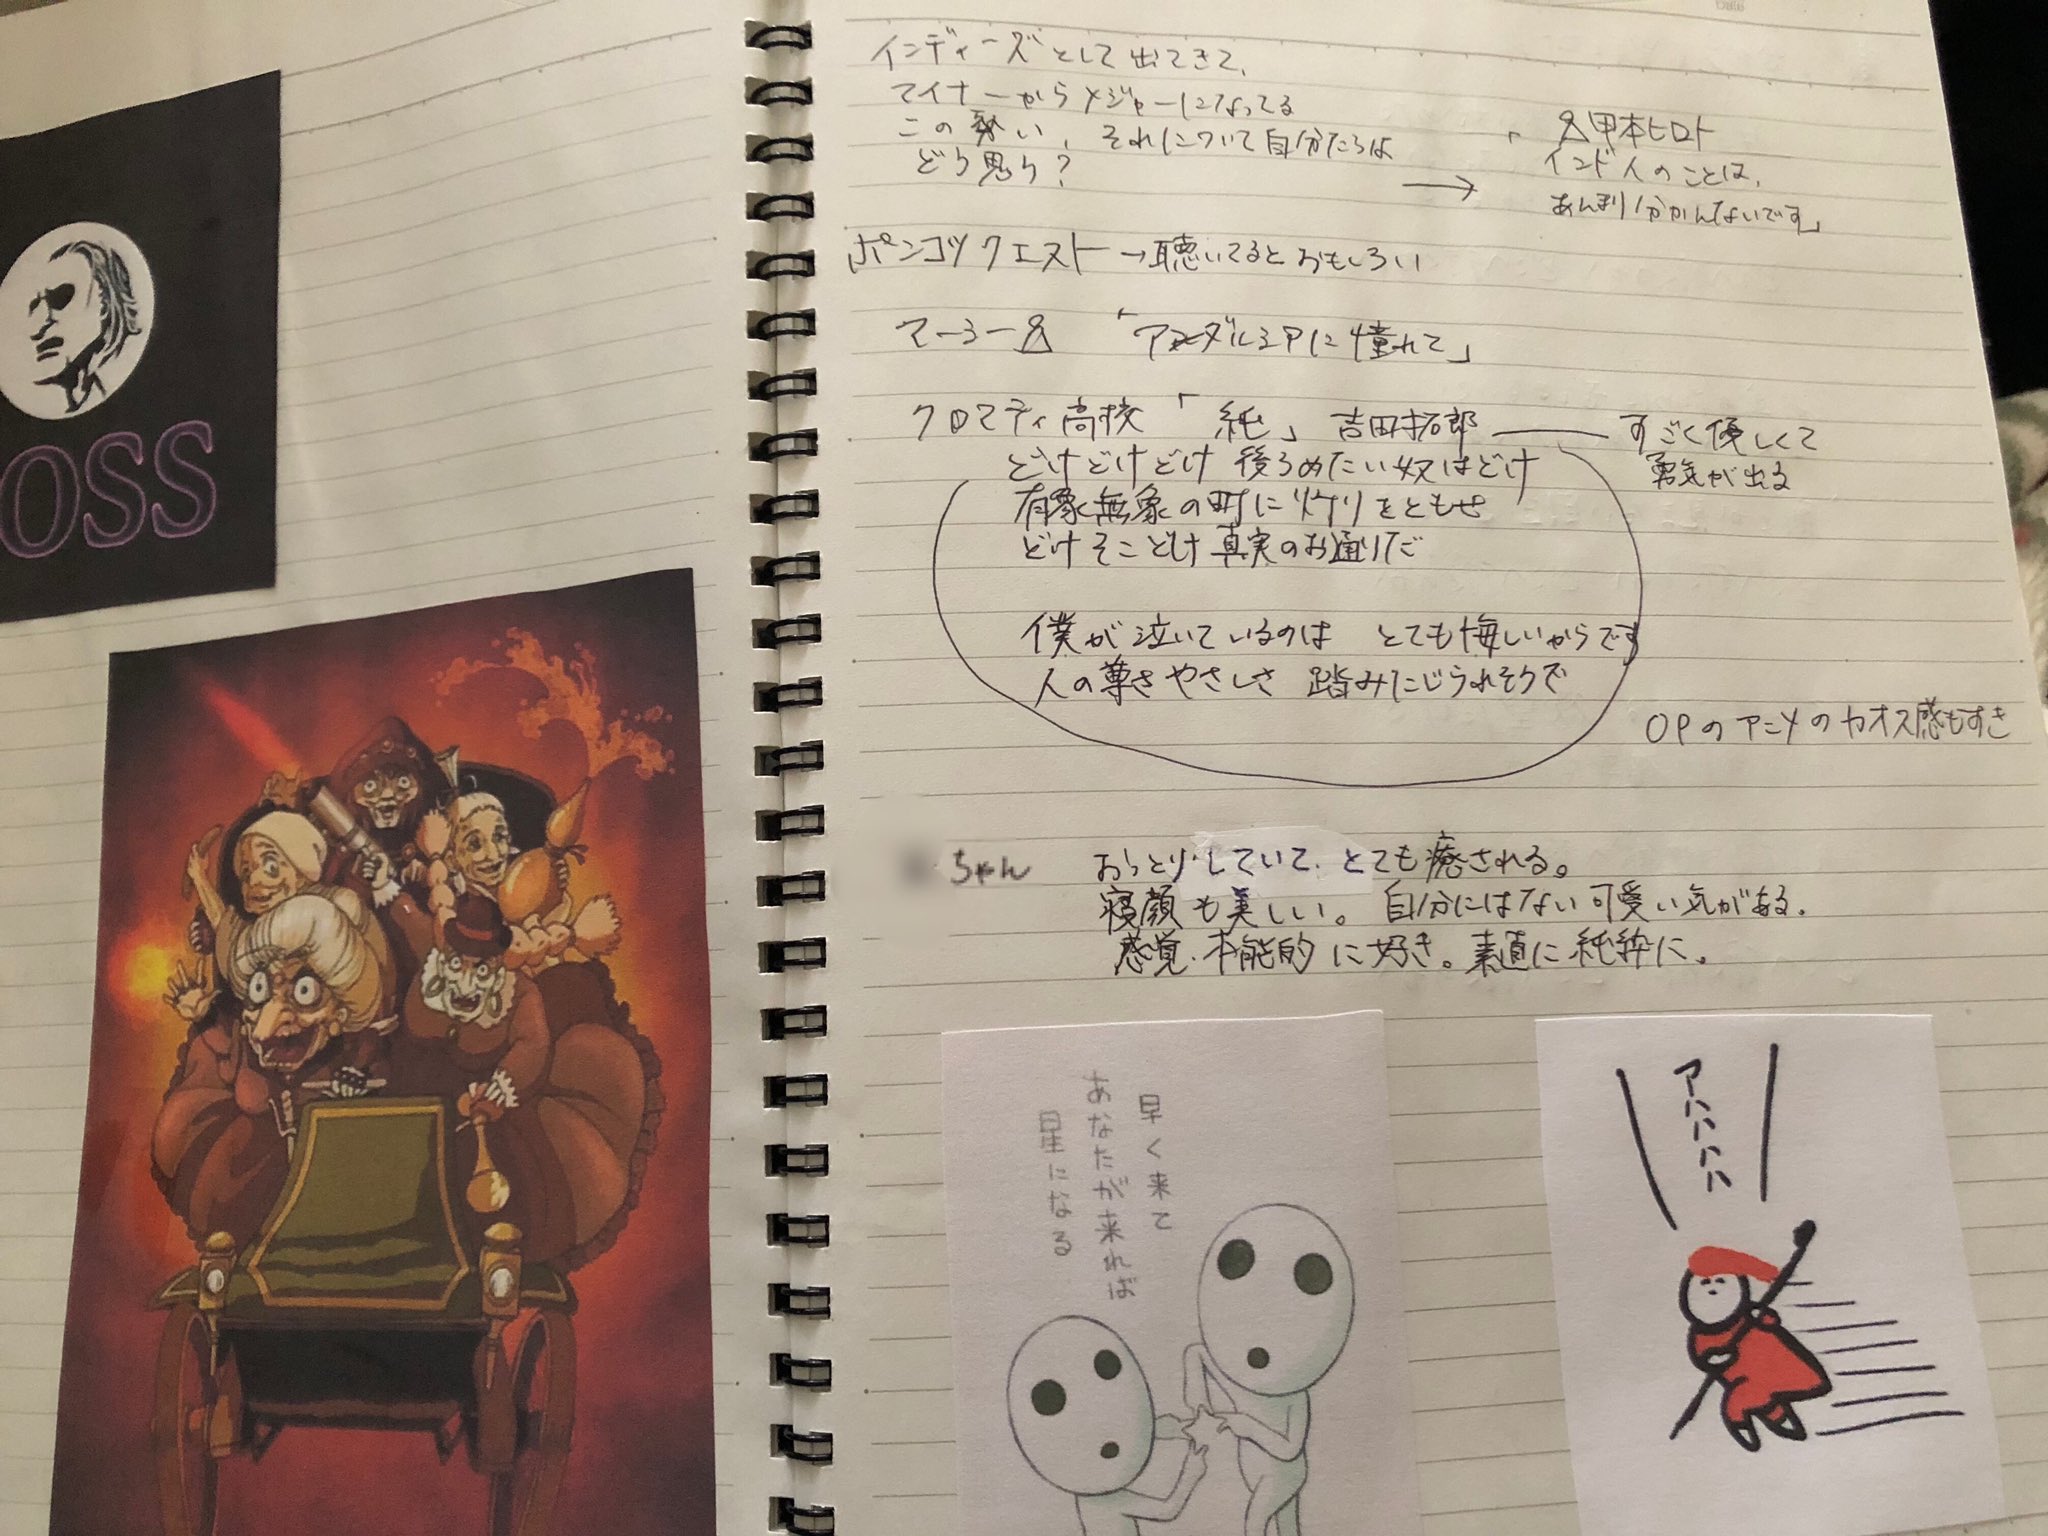 OSS
インディーズとして出てきて、
マイナーからメジャーになってる
この勢い、それについて自分たちは
どう思う?
→
「甲本ヒロト
インド人のことは、
あんまり分かんないです」
ポンコツクエスト→聴いてるとおもしろい
マーシー 「アンダルシアに憧れて」
クロマティ高校「純」吉田拓郎 ― すごく優しくて
勇気が出る
どけどけどけ 後ろめたい奴はどけ
有象無象の町に灯りをともせ
どけそこどけ真実のお通りだ
僕が泣いているのは とても悔しいからです
人の尊きやさしさ 踏みにじられそうで
OPのアニメのカオス感もすき
ちゃん おっとりしていて、とても癒される。
寝顔も美しい。自分にはない可愛い気がある。
感覚・本能的に好き。素直に純粋に。
早く来て
あなたが来れば
星になる
アハハハハ